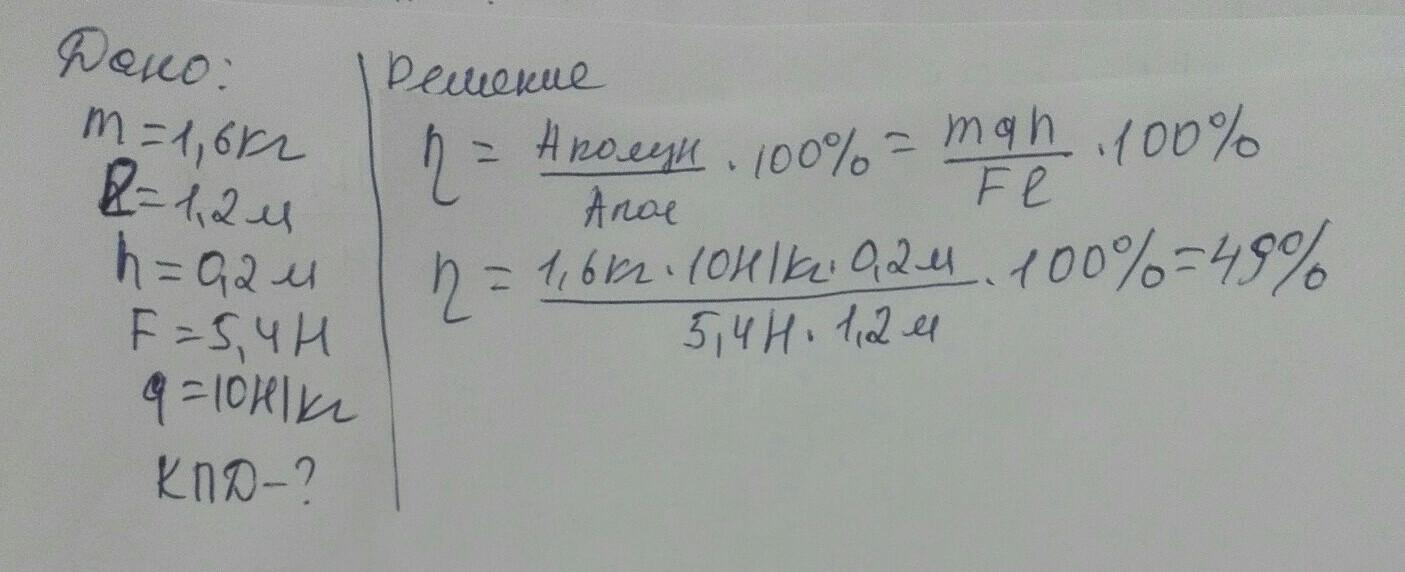 Дано:
m = 1,6 кг
l = 1,2 м
h = 0,2 м
F = 5,4 Н
g = 10 Н/кг
КПД - ?
Решение
η = Аполун / Апол · 100% = mgh / Fl · 100%
η = 1,6 кг · 10 Н/кг · 0,2 м / 5,4 Н · 1,2 м · 100% = 49%